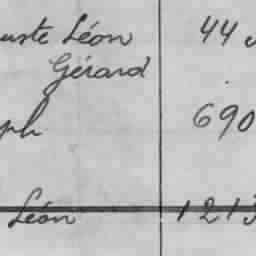 uste Léon 44
Gérard
ph 690
Léon 1213